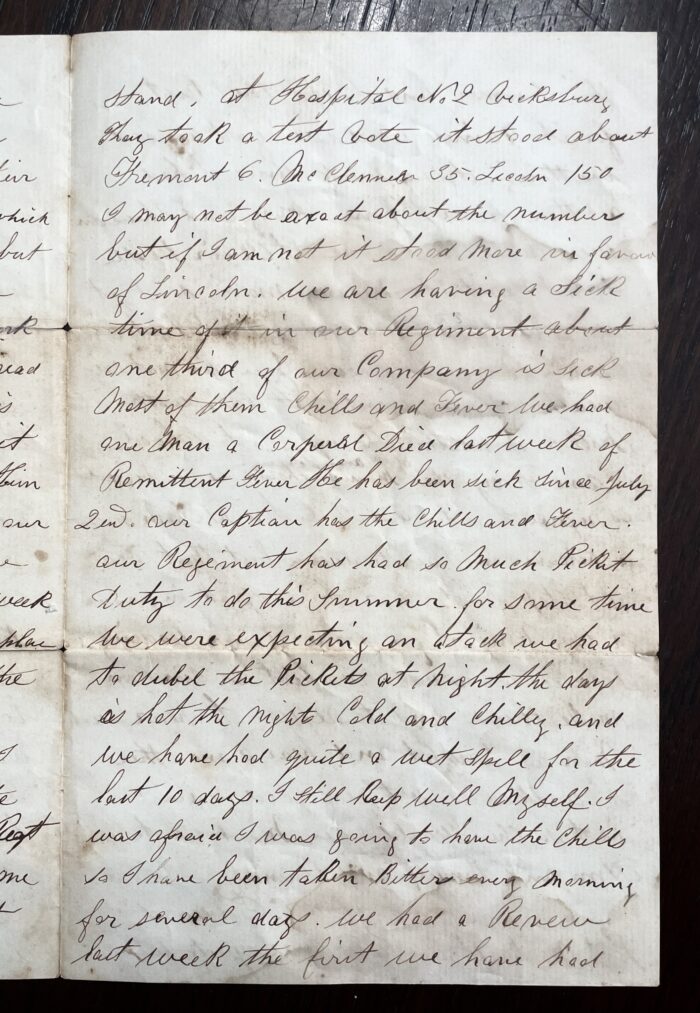 stand. at Hospital No 2 Vicksburg
They took a test vote it stood about
Fremont 6. McClennen 35. Lincoln 150
I may not be exact about the number
but if I am not it stood More in favour
of Lincoln. we are having a Sick
time of it in our Regiment about
one third of our Company is Sick
Most of them Chills and Fever We had
one Man a Corperal Died last week of
Remittent Fever He has been sick since July
2end. our Captian has the Chills and Fever.
our Regiment has had so Much Pickit
Duty to do this Summer. for some time
we were expecting an atack we had
to dubel the Pickets at Night. the days
is hot the Nights Cold and Chilley. and
we have had quite a wet Spell for the
last 10 days. I Still Keep well Myself. I
was afraid I was going to have the Chills
so I have been taken Bitters every Morning
for several days. we had a Revew
last week the first we have had
eir
which
but
ork
read
is
it
Him
our
week
place
the
I
te
Regt
me
t